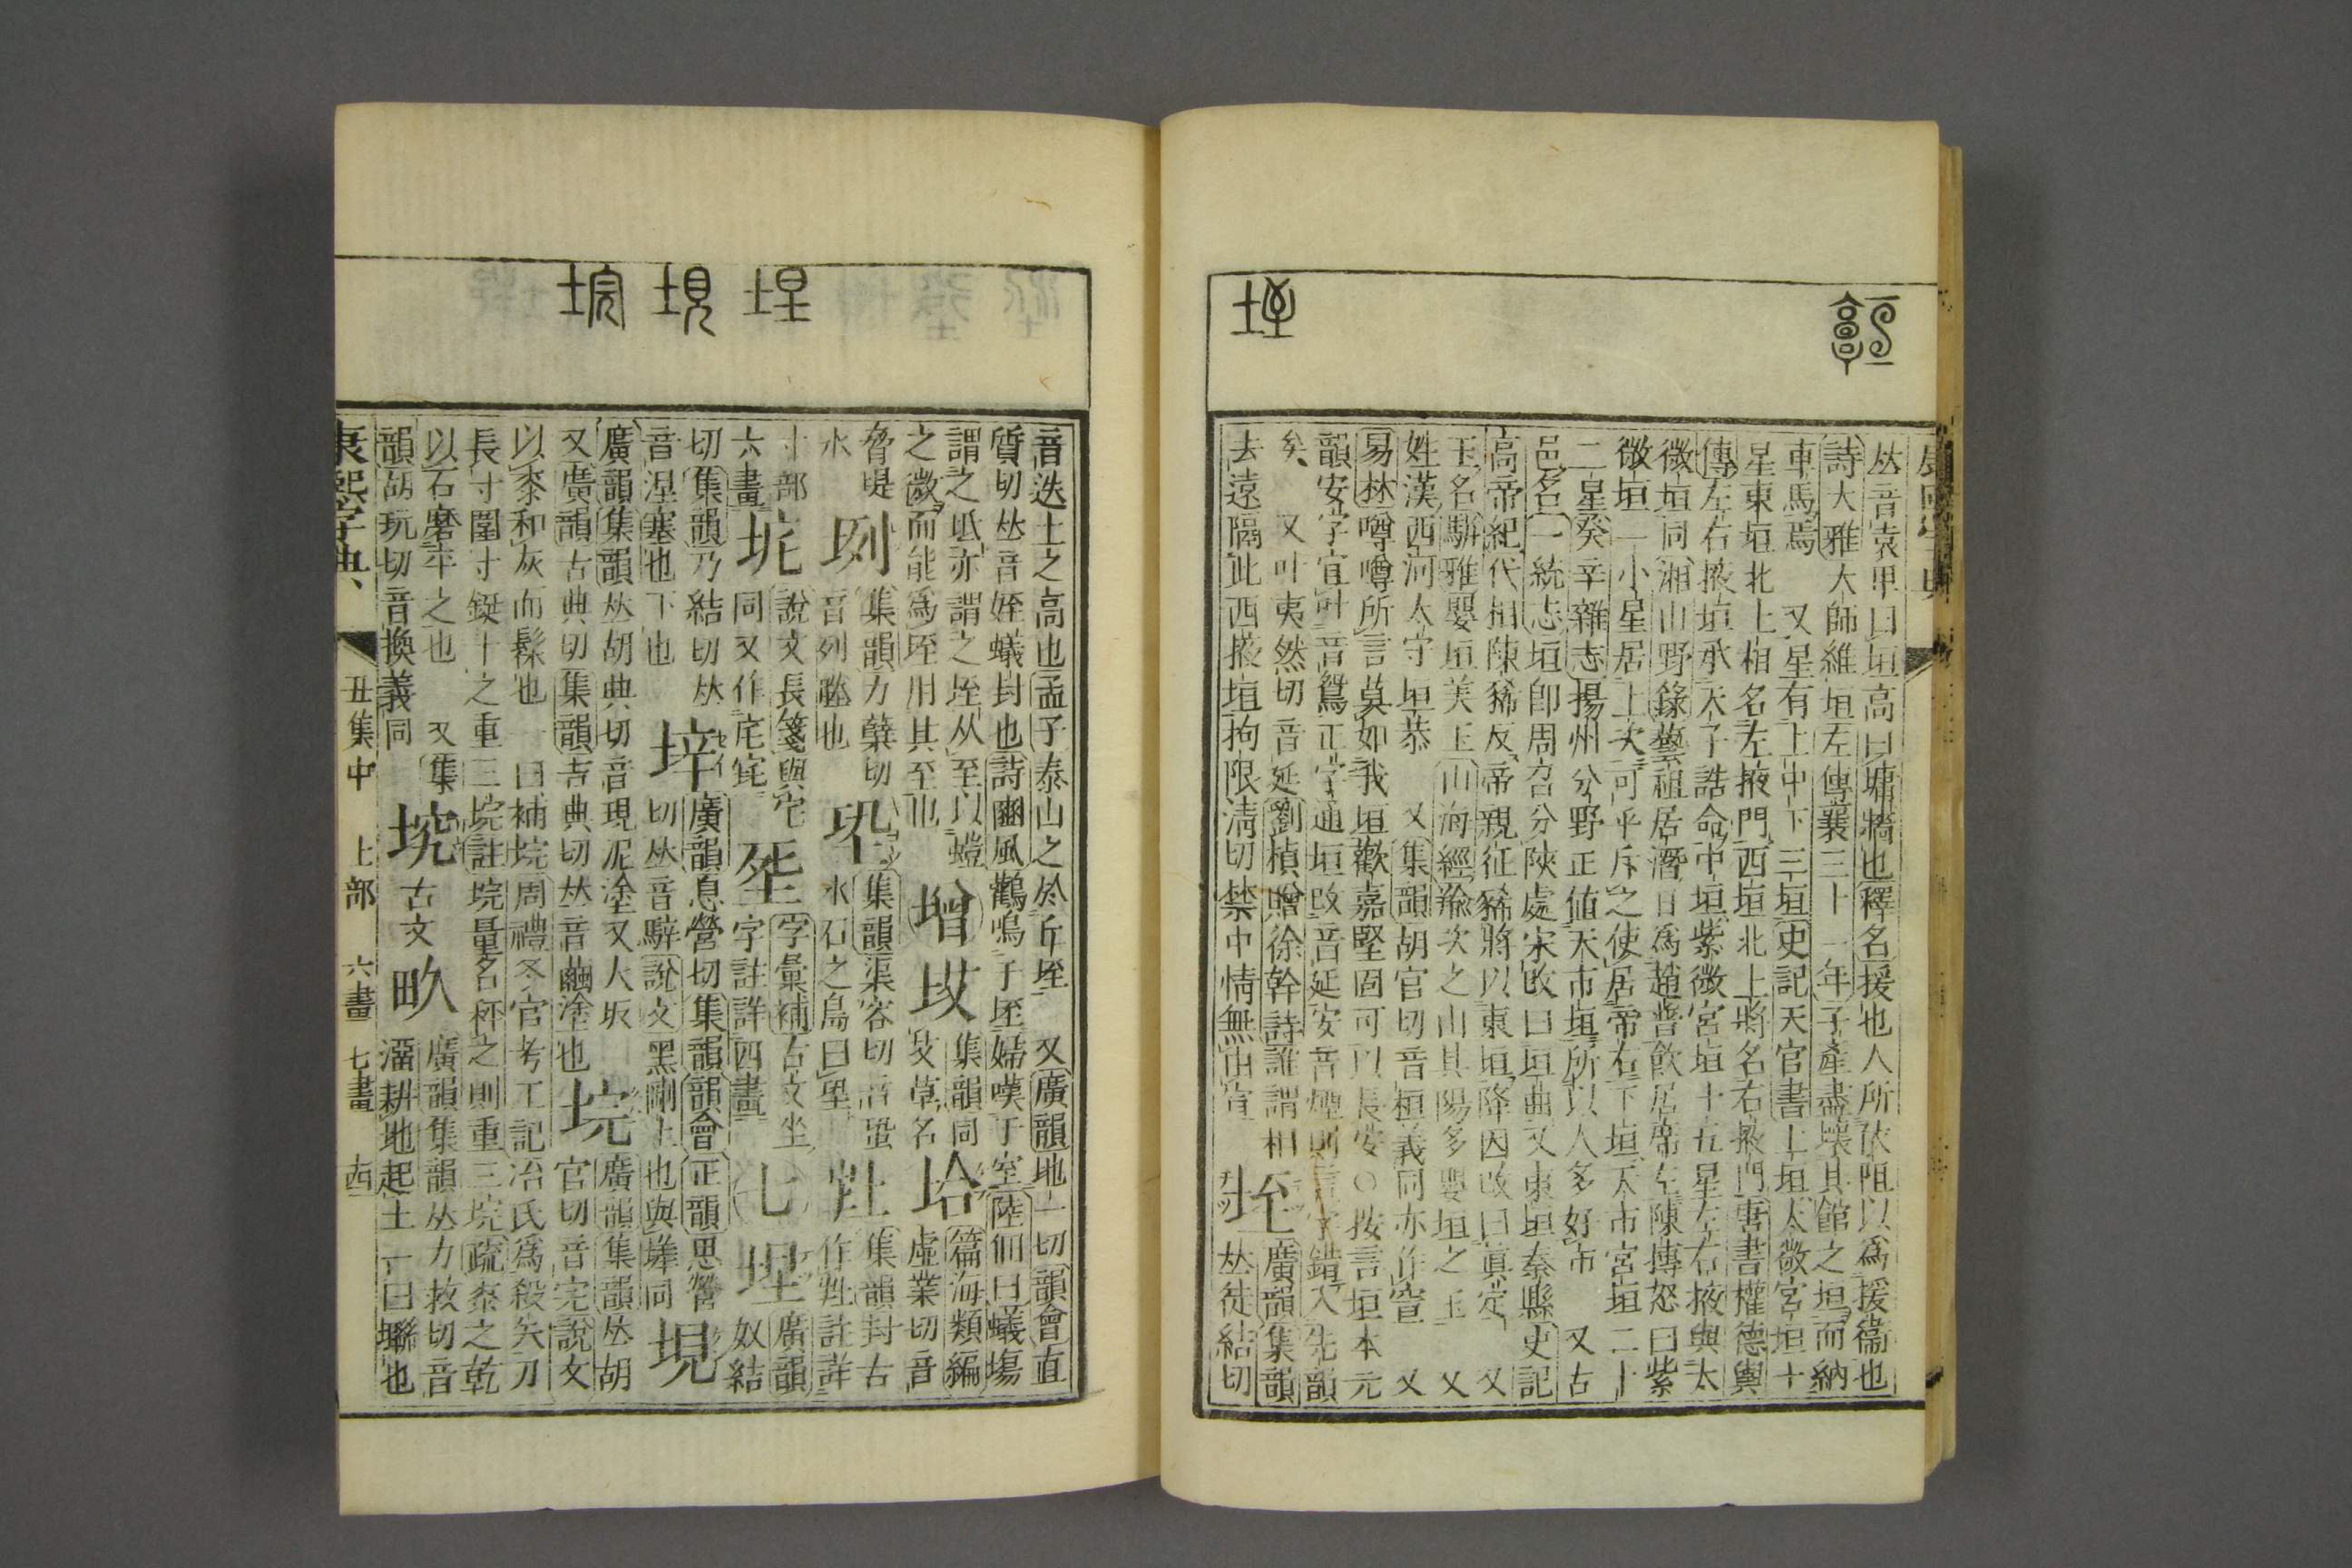 𠀤音袁甲曰垣高曰墉牆也釋名援也人所依阻以爲援衞也
詩大雅大師維垣左傳襄三十一年子產盡壞其館之垣而納
車馬焉　又星有上中下三垣史記天官書上垣太微宮垣十
星東垣北上相名左掖門西垣北上將名右掖門唐書權德輿
傳左右掖垣承天子誥命中垣紫微宮垣十五星左右掖與太
微垣同湘山野錄藝祖居潛日爲趙普飮居席左陳摶怒曰紫
微垣一小星居上次可乎斥之使居席右下垣天市宮垣二十
二星癸辛雜志揚州分野正値天市垣所以人多好市　又古
邑名一統志垣卽周召分陝處宋改曰垣曲又東垣秦縣史記
高帝紀代相陳豨反帝親征豨將以東垣降因改曰眞定　又
玉名騈雅嬰垣美玉山海經羭次之山其陽多嬰垣之玉　又
姓漢西河太守垣恭　又集韻胡官切音桓義同亦作𡩡　又
易林噂噂所言莫如我垣歡嘉堅固可以長安○按言垣本元
韻安字宜叶音鴛正字通垣改音延安音煙則言字錯入先韻
矣　又叶夷然切音延劉楨贈徐幹詩誰謂相
去遠隔此西掖垣拘限淸切禁中情無由宣　垤　廣韻集韻𠀤徒結切
音迭土之高也孟子泰山之於丘垤　又廣韻地一切韻會直
質切𠀤音姪蟻封也詩豳風鸛鳴于垤婦嘆于室陸佃曰蟻塲
謂之坻亦謂之垤从至以螘
之微而能爲垤用其至也　增　垁　艾草名　集韻同　㙅　篇海類編虛業切音
脅堤　㽝　集韻力蘖切
水　音列塍也　巩　集韻渠容切音蛩水石之鳥曰巩　㚰　集韻封古作㚰註詳
寸部
六畫　垞　說文長箋與宅同又作㡯宅　坙　字彙補古文坐字註詳四畫　七　埕　廣韻奴結
切集韻乃結切𠀤
音涅塞也下也　垶　廣韻息營切集韻韻會正韻思營切𠀤音騂說文黑剛土也與㙚同　垷　廣韻集韻𠀤胡
廣韻集韻𠀤胡典切音現泥塗又大坂
又廣韻古典切集韻吉典切𠀤音繭塗也　垸　廣韻集韻𠀤胡官切音完說文
以桼和灰而髹也一曰補垸周禮冬官考工記冶氏爲殺矢刃
長寸圍寸鋌十之重三垸註垸量名秤之則重三垸疏桼之乾
以石磨平之也　又集
韻胡玩切音換義同　㙇　古文　畂　廣韻集韻𠀤力救切音溜耕地起土一曰塍也
康熙字典　丑集中　土部　六畫　七畫　十四